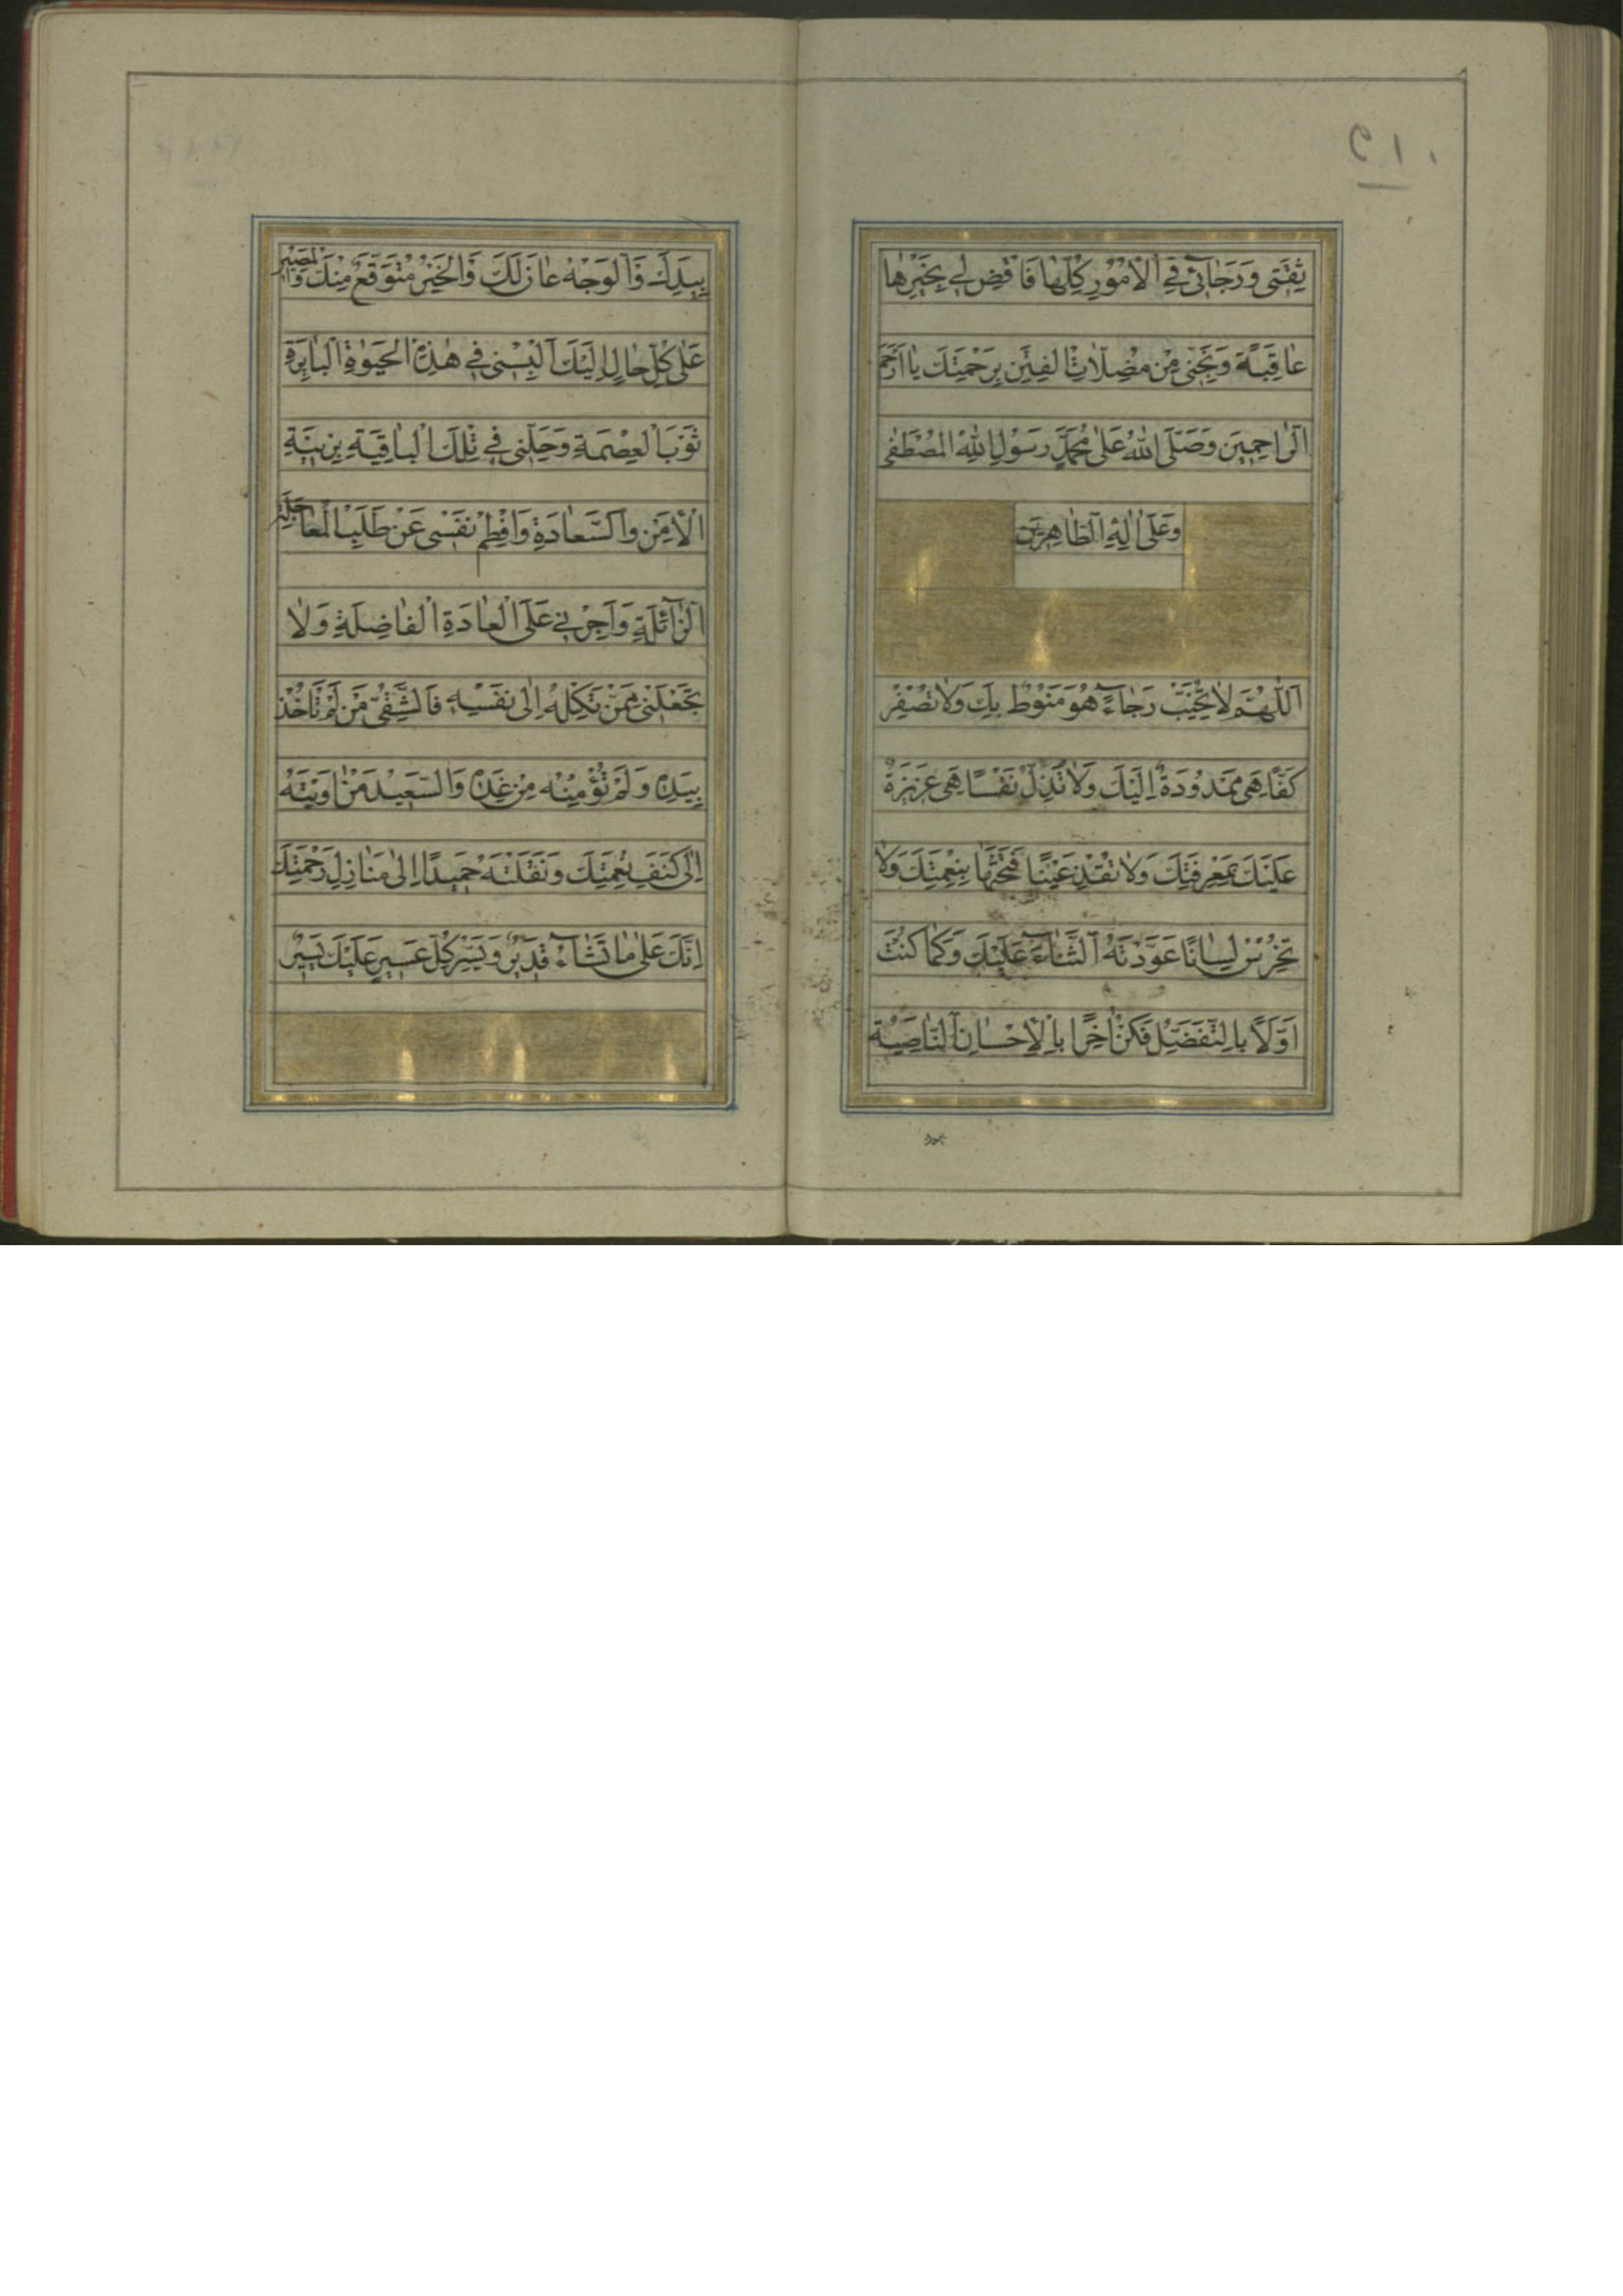 ثِقَتِی وَرَجَائِی فِی الْاُمُوْرِ كُلِّهَا فَاقْضِ لِی بِخَیْرِهَا
عَاقِبَةً وَنَجِّنِی مِنْ مُضِلَّاتِ الْفِتَنِ بِرَحْمَتِكَ یَا اَرْحَمَ
الرَّاحِمِیْنَ وَصَلَّی اللهُ عَلٰی مُحَمَّدٍ رَسُوْلِ اللهِ الْمُصْطَفٰی
وَعَلٰی اٰلِهِ الطَّاهِرِیْنَ
اَللّٰهُمَّ لَا تُخَیِّبْ رَجَاءً هُوَ مَنُوْطٌ بِكَ وَلَا تُصْفِرْ
كَفًّا هِیَ مَمْدُوْدَةٌ اِلَیْكَ وَلَا تُذِلَّ نَفْسًا هِیَ عَزِیْزَةٌ
عَلَیْكَ بِمَعْرِفَتِكَ وَلَا تُقْذِ عَیْنًا فَتَحْتَهَا بِنِعْمَتِكَ وَلَا
تُخْرِسْ لِسَانًا عَوَّدْتَهُ الثَّنَاءَ عَلَیْكَ وَكَمَا كُنْتَ
اَوَّلًا بِالتَّفَضُّلِ فَكُنْ اٰخِرًا بِالْاِحْسَانِ النَّاصِیَةُ
بِیَدِكَ وَالْوَجْهُ عَانٍ لَكَ وَالْخَیْرُ مُتَوَقَّعٌ مِنْكَ وَالْمَصِیْرُ
عَلٰی كُلِّ حَالٍ اِلَیْكَ اَلْبِسْنِی فِی هٰذِهِ الْحَیٰوةِ الْبَایِرَةِ
ثَوْبَ الْعِصْمَةِ وَحَلِّنِی فِی تِلْكَ الْبَاقِیَةِ بِزِیْنَةِ
الْاَمْنِ وَالسَّعَادَةِ وَافْطِمْ نَفْسِی عَنْ طَلَبِ الْعَاجِلَةِ
الزَّائِلَةِ وَاَجْرِنِی عَلَی الْعَادَةِ الْفَاضِلَةِ وَلَا
تَجْعَلْنِی مِمَّنْ تَكِلُهُ اِلٰی نَفْسِهِ فَالشَّقِیُّ مَنْ لَمْ تَاْخُذْ
بِیَدِهِ وَلَمْ تُؤْمِنْهُ مِنْ غَدِهِ وَالسَّعِیْدُ مَنْ اٰوَیْتَهُ
اِلٰی كَنَفِ نِعْمَتِكَ وَنَقَلْتَهُ حَمِیْدًا اِلٰی مَنَازِلِ رَحْمَتِكَ
اِنَّكَ عَلٰی مَا تَشَاءُ قَدِیْرٌ وَیَسِّرْ كُلَّ عَسِیْرٍ عَلَیْكَ یَسِیْرٌ